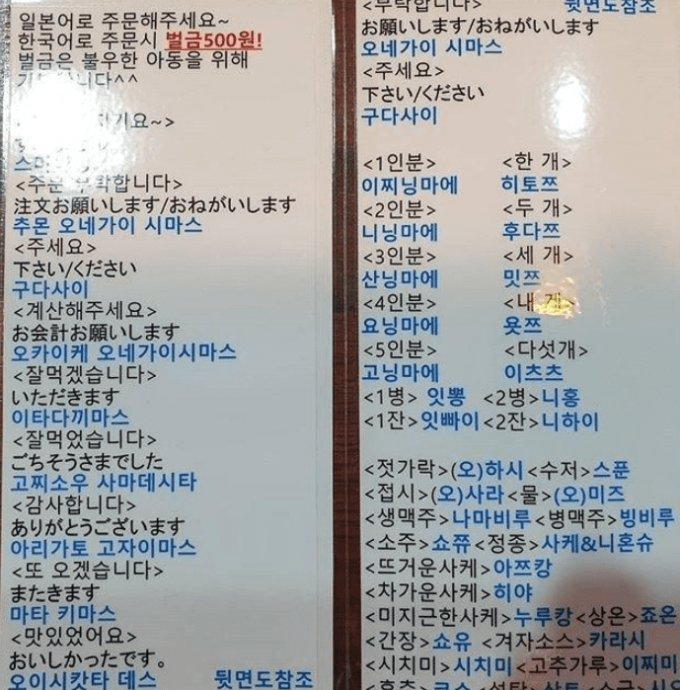 일본어로 주문해주세요~
한국어로 주문시 벌금500원!
벌금은 불우한 아동을 위해
<주문 부탁합니다>
注文お願いします/おねがいします
추몬 오네가이 시마스
<주세요>
下さい/ください
구다사이
<계산해주세요>
お会計お願いします
오카이케 오네가이시마스
<잘먹겠습니다>
いただきます
이타다끼마스
<잘먹었습니다>
ごちそうさまでした
고찌소우 사마데시타
<감사합니다>
ありがとうございます
아리가토 고자이마스
<또 오겠습니다>
またきます
마타 키마스
<맛있었어요>
おいしかったです。
오이시캇타 데스 뒷면도참조
<부탁합니다> 뒷면도참조
お願いします/おねがいします
오네가이 시마스
<주세요>
下さい/ください
구다사이
<1인분> <한 개>
이찌닝마에 히토쯔
<2인분> <두 개>
니닝마에 후다쯔
<3인분> <세 개>
산닝마에 밋쯔
<4인분> <내 개>
요닝마에 욧쯔
<5인분> <다섯개>
고닝마에 이츠츠
<1병> 잇뽕 <2병>니홍
<1잔>잇빠이<2잔>니하이
<젓가락>(오)하시<수저>스푼
<접시>(오)사라<물>(오)미즈
<생맥주>나마비루<병맥주>빙비루
<소주>쇼쮸<정종>사케&니혼슈
<뜨거운사케>아쯔캉
<차가운사케>히야
<미지근한사케>누루캉<상온>죠온
<간장>쇼유<겨자소스>카라시
<시치미>시치미<고추가루>이찌미